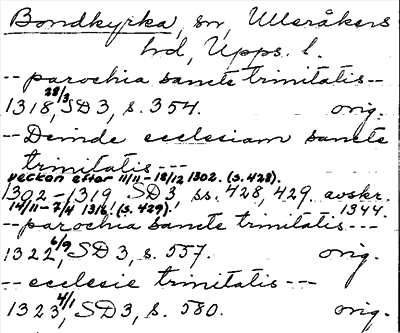 Bondkyrka, sn, Ulleråkers
hd, Upps. l.
-- parochia sancte trinitatis --
1318 28/3, SD 3, s. 354. orig.
-- Deinde ecclesiam sancte
trinitatis ---
veckan efter 11/11 - 18/12 1302. (s. 428).
1302 - 1319 SD 3, ss. 428, 429. avskr.
14/11 - 7/4 1316! (s. 429). 1344.
-- parochia sancte trinitatis ---
1322 6/9, SD 3, s. 557. orig.
-- ecclesie trinitatis ---
1323 4/1, SD 3, s. 580. orig.